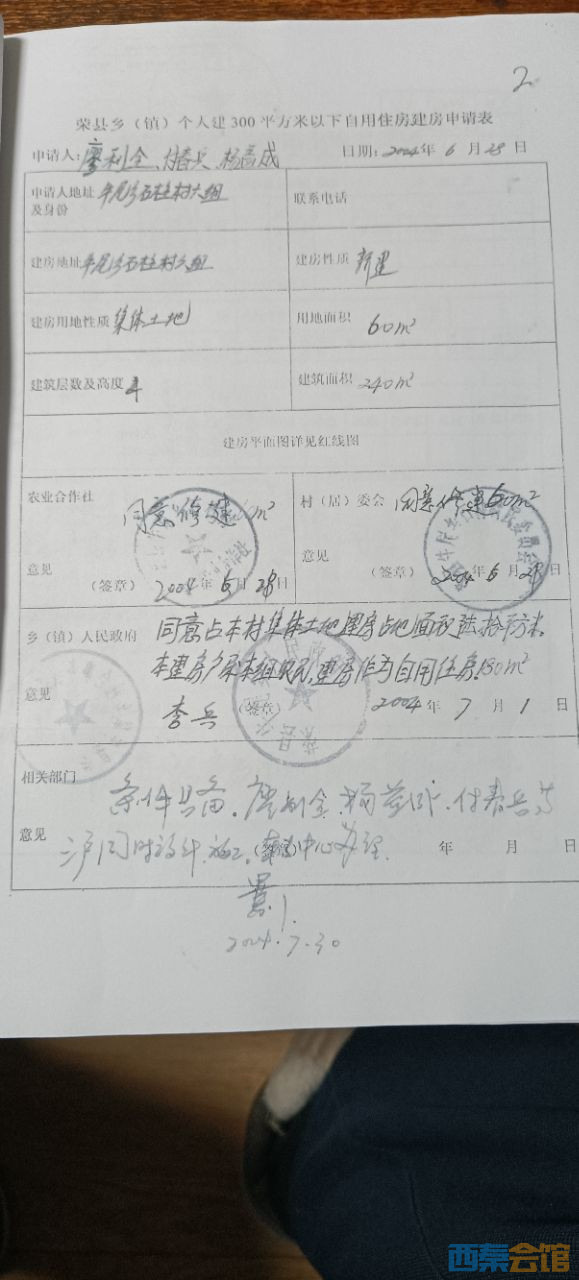 2
荣县乡（镇）个人建300平方米以下自用住房建房申请表
申请人：廖利全、付春兵、杨益成 日期：2004年6月28日
申请人地址及身份 牟尾乡石柱村六组 联系电话
建房地址 牟尾乡石柱村六组 建房性质 新建
建房用地性质 集体土地 用地面积 60m²
建筑层数及高度 4 建筑面积 240m²
建房平面图详见红线图
农业合作社 同意修建 m²
意见 （签章） 2004年6月28日
村（居）委会 同意修建60m²
意见 （签章） 2004年6月28日
乡（镇）人民政府 同意占本村集体土地建房占地面积陆拾平方米。
本建房户系本组农民，建房作为自用住房，180m²
意见 李兵 （签章） 2004年7月1日
相关部门 条件具备。廖利全、杨益成、付春兵等
意见 三户同时设计、施工。（签章）中心办理 年 月 日
2004.7.30
西秦会馆